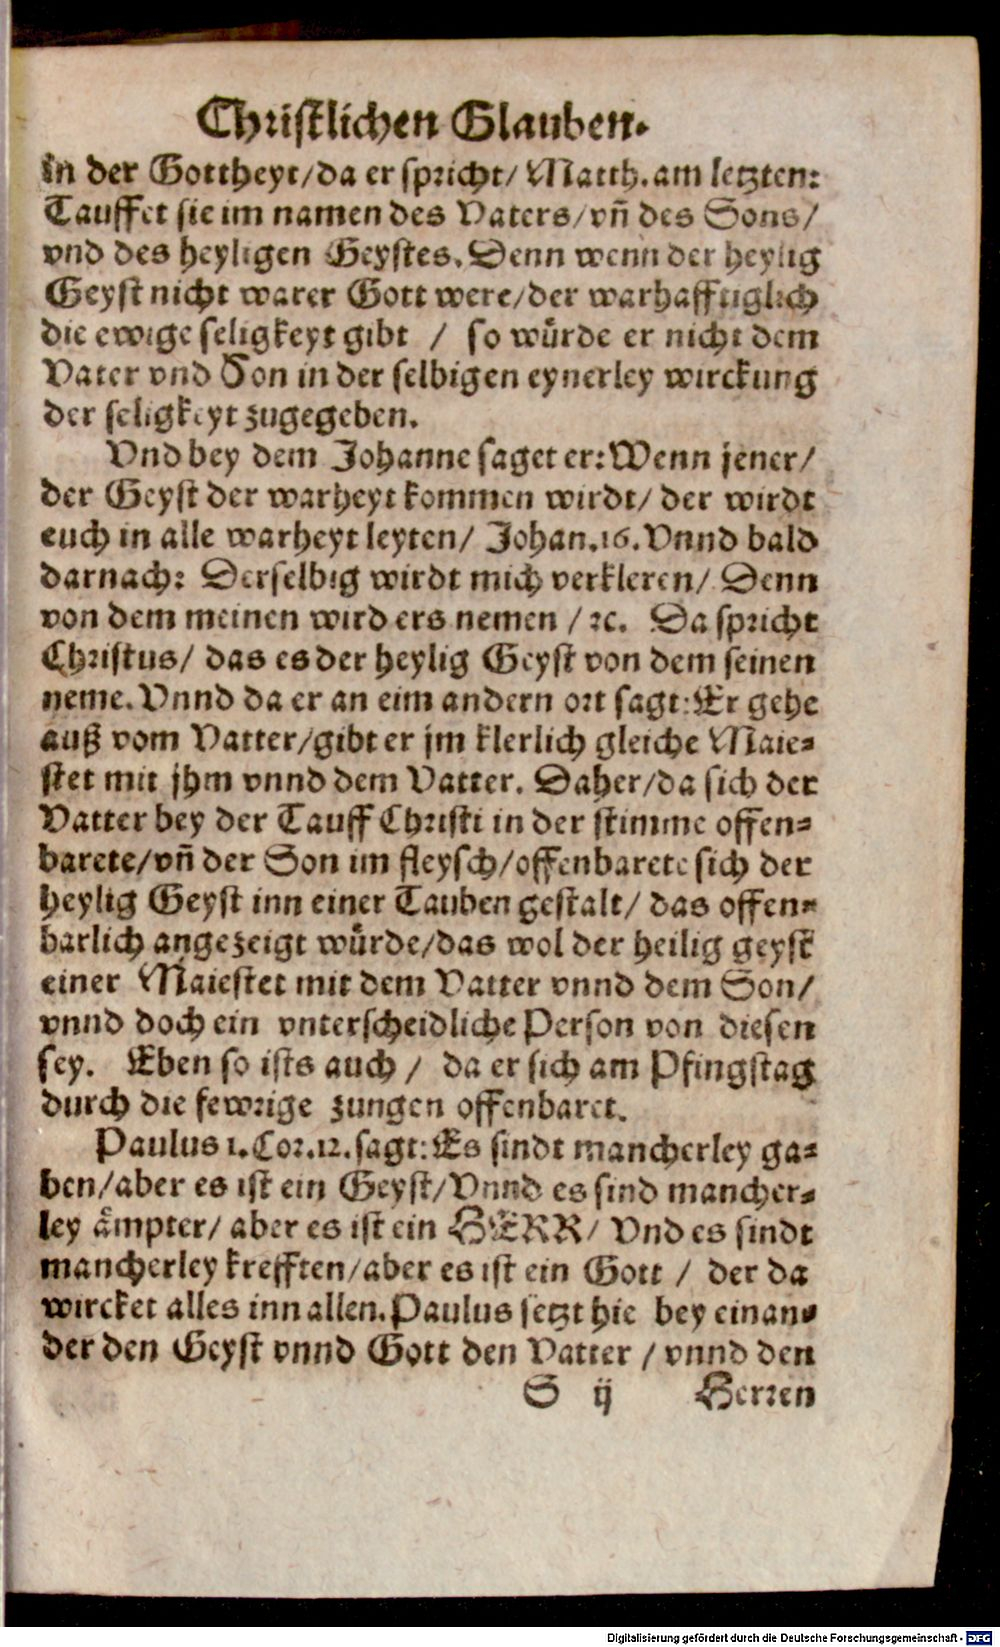 Christlichen Glauben.
in der Gottheyt/da er spricht/ Matth. am letzten:
Tauffet sie im namen des Vaters/vñ des Sons/
vnd des heyligen Geystes. Denn wenn der heylig
Geyst nicht warer Gott were/der warhafftiglich
die ewige seligkeyt gibt / so wuͤrde er nicht dem
Vater vnd Son in der selbigen eynerley wirckung
der seligkeyt zugegeben.
Vnd bey dem Johanne saget er: Wenn jener/
der Geyst der warheyt kommen wirdt/ der wirdt
euch in alle warheyt leyten/ Johan.16. Vnnd bald
darnach: Derselbig wirdt mich verkleren/ Denn
von dem meinen wird ers nemen /ꝛc. Da spricht
Christus/ das es der heylig Geyst von dem seinen
neme. Vnnd da er an eim andern ort sagt: Er gehe
auß vom Vatter/gibt er jm klerlich gleiche Maie⸗
stet mit jhm vnnd dem Vatter. Daher/da sich der
Vatter bey der Tauff Christi in der stimme offen⸗
barete/vñ der Son im fleysch/offenbarete sich der
heylig Geyst inn einer Tauben gestalt/ das offen⸗
barlich angezeigt wuͤrde/das wol der heilig geyst
einer Maiestet mit dem Vatter vnnd dem Son/
vnnd doch ein vnterscheidliche Person von diesen
sey. Eben so ists auch / da er sich am Pfingstag
durch die fewrige zungen offenbaret.
Paulus 1. Cor.12. sagt: Es sindt mancherley ga⸗
ben/aber es ist ein Geyst/Vnnd es sind mancher⸗
ley aͤmpter/ aber es ist ein HERR/ Vnd es sindt
mancherley krefften/aber es ist ein Gott / der da
wircket alles inn allen. Paulus setzt hie bey einan⸗
der den Geyst vnnd Gott den Vatter / vnnd den
S ij Herren
Digitalisierung gefördert durch die Deutsche Forschungsgemeinschaft - DFG